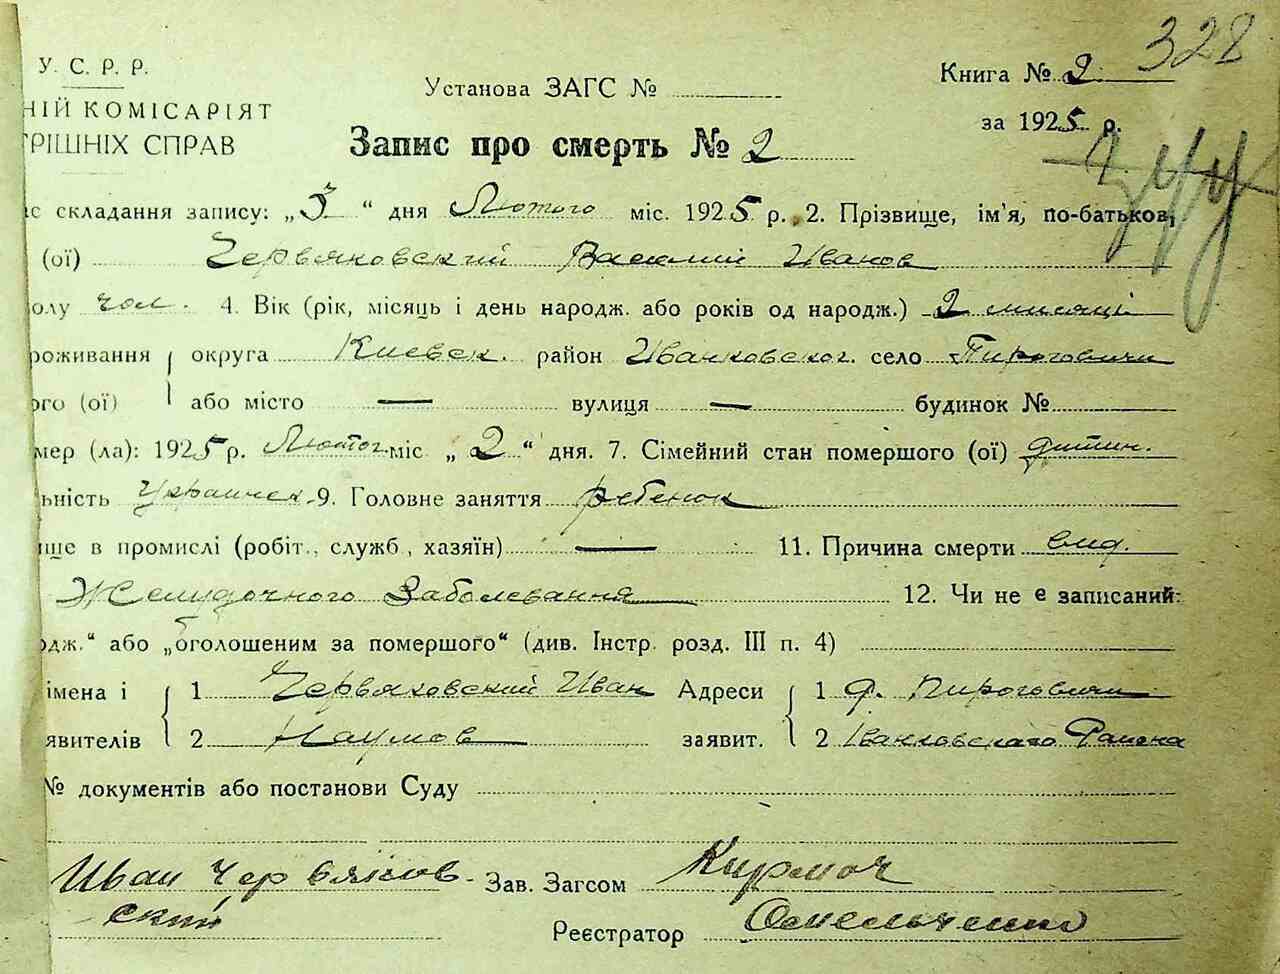 328
У. С. Р. Р.
Установа ЗАГС №
Книга № 2
НІЙ КОМІСАРІЯТ
РІШНІХ СПРАВ
за 1925 р.
Запис про смерть № 2
с складання запису: „3“ дня Лютого міс. 1925 р. 2. Прізвище, ім'я, по-батьков,
(ої) Червяковский Василий Иванов
олу чол. 4. Вік (рік, місяць і день народж. або років од народж.) 2 мисяці
роживання округа Киевск. район Иванковског. село Пироговичи
ого (ої) або місто — вулиця — будинок №
мер (ла): 1925 р. Лютог. міс „2“ дня. 7. Сімейний стан помершого (ої) дитин.
ьність Украинск 9. Головне заняття ребенок
ще в промислі (робіт., служб, хазяїн) — 11. Причина смерти вид.
Желудочного Заболевання 12. Чи не є записаний:
дж.“ або „оголошеним за помершого“ (див. Інстр. розд. III п. 4)
імена і 1 Червяковский Иван Адреси 1 с. Пироговичи
явителів 2 Наумов заявит. 2 Іванковскаго Района
№ документів або постанови Суду
Иван Червяков-
ский
Зав. Загсом
Реєстратор Омельченко